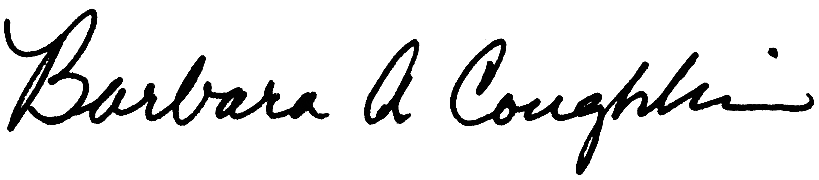 Barbara A Coughlin